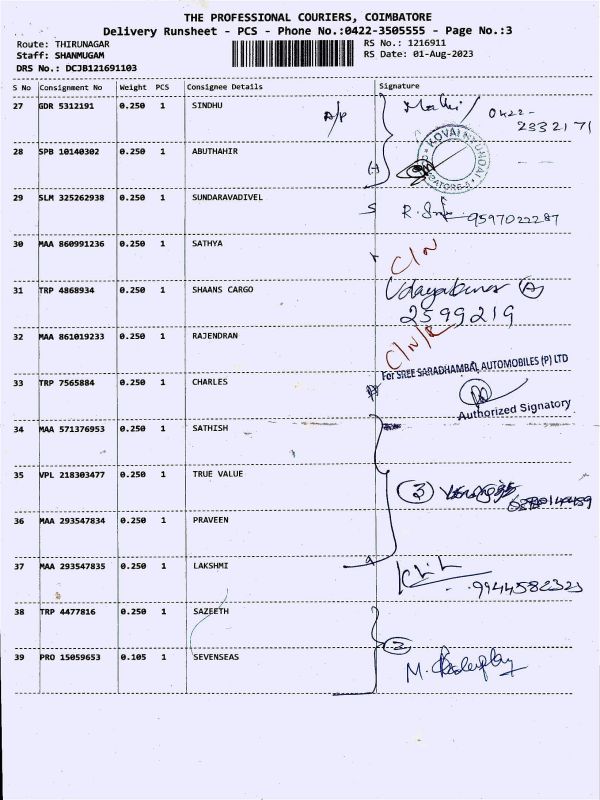 THE PROFESSIONAL COURIERS, COIMBATORE
Delivery Runsheet - PCS - Phone No.:0422-3505555 - Page No.:3
Route: THIRUNAGAR
RS No.: 1216911
Staff: SHANMUGAM
RS Date: 01-Aug-2023
DRS No.: DCJB121691103
S No Consignment No Weight PCS Consignee Details Signature
27 GDR 5312191 0.250 1 SINDHU A/P
0422-
2332171
28 SPB 10140302 0.250 1 ABUTHAHIR
KOVAI HYUNDAI
29 SLM 325262938 0.250 1 SUNDARAVADIVEL
9597022287
30 MAA 860991236 0.250 1 SATHYA C/N
31 TRP 4868934 0.250 1 SHAANS CARGO Udayakumar (A)
2599219
32 MAA 861019233 0.250 1 RAJENDRAN C/N/R
For SREE SARADHAMBAL AUTOMOBILES (P) LTD
33 TRP 7565884 0.250 1 CHARLES
Authorized Signatory
34 MAA 571376953 0.250 1 SATHISH
35 VPL 218303477 0.250 1 TRUE VALUE 3
36 MAA 293547834 0.250 1 PRAVEEN
37 MAA 293547835 0.250 1 LAKSHMI
9944582323
38 TRP 4477816 0.250 1 SAZEETH
2
39 PRO 15059653 0.105 1 SEVENSEAS